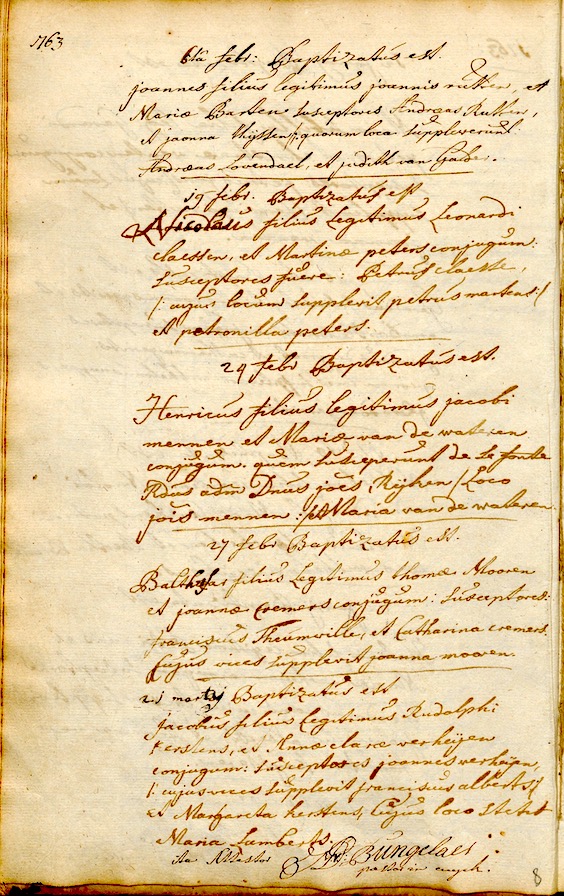 1763
6ta febr: Baptizatus est.
joannes filius legitimus joannis rutten, et
Mariæ Barten susceptores Andreas Rutten,
et joanna thijssen /: quorum loca suppleverunt:
Andreas Lovendael, et judith van Gelder.
19 febr. Baptizatus est
Nicolaus filius legitimus Leonardi
claessen, et Martinæ peters conjugum:
Susceptores fuere: Petrus claesse,
/: cujus locum supplevit petrus martens :/
et petronilla peters.
24 febr Baptizatus est.
Henricus filius legitimus jacobi
mennen et Mariæ van de wateren
conjugum. quem susceperunt de Se fonte
Rdus adm Dnus joës Rijhen / Loco
joïs mennen :/ et Maria van de wateren
27 febr Baptizatus est.
Balthasar filius legitimus thomæ Mooren
et joannæ cremers conjugum: Susceptores:
franciscus Theunville, et Catharina cremers.
Cujus vices supplevit joanna mooren.
21 martij Baptizatus est
jacobus filius legitimus Rudolphi
kerstens, et Annæ claræ verheijen
conjugum: susceptores joannes verheijen,
/: cujus vices supplevit franciscus alberts :/
et Margareta kerstens, Cujus loco stetit
Maria Lamberts.
ita Attestor
Bungelaer
pastor in
8